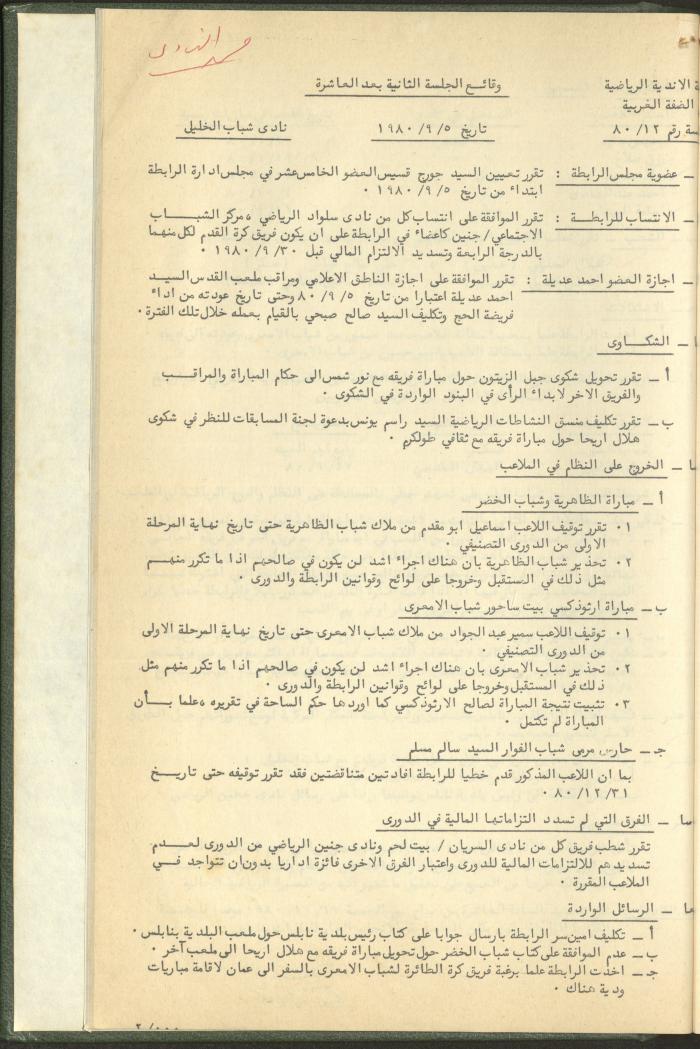 وقائع الجلسة الثانية بعد العاشرة
الاندية الرياضية
الضفة الغربية
رقم ٨٠/١٢
تاريخ ٥/٩/١٩٨٠
نادى شباب الخليل
ـ عضوية مجلس الرابطة : تقرر تعيين السيد جورج قسيس العضو الخامس عشر في مجلس ادارة الرابطة
ابتداء من تاريخ ٥/٩/١٩٨٠ ٠
ـ الانتساب للرابطــة : تقرر الموافقة على انتساب كل من نادى سلواد الرياضي ، مركز الشبــاب
الاجتماعي/ جنين كاعضاء في الرابطة على ان يكون فريق كرة القدم لكل منهما
بالدرجة الرابعة وتسديد الالتزام المالي قبل ٣٠/٩/١٩٨٠ ٠
ـ اجازة العضو احمد عديلة : تقرر الموافقة على اجازة الناطق الاعلامي ومراقب ملعب القدس السيــد
احمد عديلة اعتبارا من تاريخ ٥/٩/٨٠ وحتى تاريخ عودته من اداء
فريضة الحج وتكليف السيد صالح صبحي بالقيام بعمله خلال تلك الفترة ٠
ـ الشكــاوى
أ ـ تقرر تحويل شكوى جبل الزيتون حول مباراة فريقه مع نور شمس الى حكام المباراة والمراقــب
والفريق الاخر لابداء الرأى في البنود الواردة في الشكوى ٠
ب ـ تقرر تكليف منسق النشاطات الرياضية السيد راسم يونس بدعوة لجنة المسابقات للنظر في شكوى
هلال اريحا حول مباراة فريقه مع ثقافي طولكرم ٠
ـ الخروج على النظم في الملاعب
أ ـ مباراة الظاهرية وشباب الخضر
١ ٠ تقرر توقيف اللاعب اسماعيل ابو مقدم من ملاك شباب الظاهرية حتى تاريخ نهاية المرحلة
الاولى من الدورى التصنيفي ٠
٢ ٠ تحذير شباب الظاهرية بان هناك اجراء اشد لن يكون في صالحهم اذا ما تكرر منهــم
مثل ذلك في المستقبل وخروجا على لوائح وقوانين الرابطة والدورى ٠
ب ـ مباراة ارثوذكسي بيت ساحور شباب الامعرى
١ ٠ توقيف اللاعب سمير عبد الجواد من ملاك شباب الامعرى حتى تاريخ نهاية المرحلة الاولى
من الدورى التصنيفي ٠
٢ ٠ تحذير شباب الامعرى بان هناك اجراء اشد لن يكون في صالحهم اذا ما تكرر منهم مثل
ذلك في المستقبل وخروجا على لوائح وقوانين الرابطة والدورى ٠
٣ ٠ تثبيت نتيجة المباراة لصالح الارثوذكسي كما اوردها حكم الساحة في تقريره ، علما بــأن
المباراة لم تكتمل ٠
جـ ـ حارس مرمى شباب الفوار السيد سالم مسلم
بما ان اللاعب المذكور قدم خطيا للرابطة افادتين متناقضتين فقد تقرر توقيفه حتى تاريــخ
٣١/١٢/٨٠ ٠
ـ الفرق التي لم تسدد التزاماتها المالية في الدورى
تقرر شطب فريق كل من نادى السريان / بيت لحم ونادى جنين الرياضي من الدورى لعــدم
تسديدهم للالتزامات المالية للدورى واعتبار الفرق الاخرى فائزة اداريا بدون ان تتواجد فــي
الملاعب المقررة ٠
ـ الرسائل الواردة
أ ـ تكليف امين سر الرابطة بارسال جوابا على كتاب رئيس بلدية نابلس حول ملعب البلدية بنابلس ٠
ب ـ عدم الموافقة على كتاب شباب الخضر حول تحويل مباراة فريقه مع هلال اريحا الى ملعب آخر ٠
جـ ـ اخذت الرابطة علما برغبة فريق كرة الطائرة لشباب الامعرى بالسفر الى عمان لاقامة مباريات
ودية هناك ٠
٢/٠٠٠